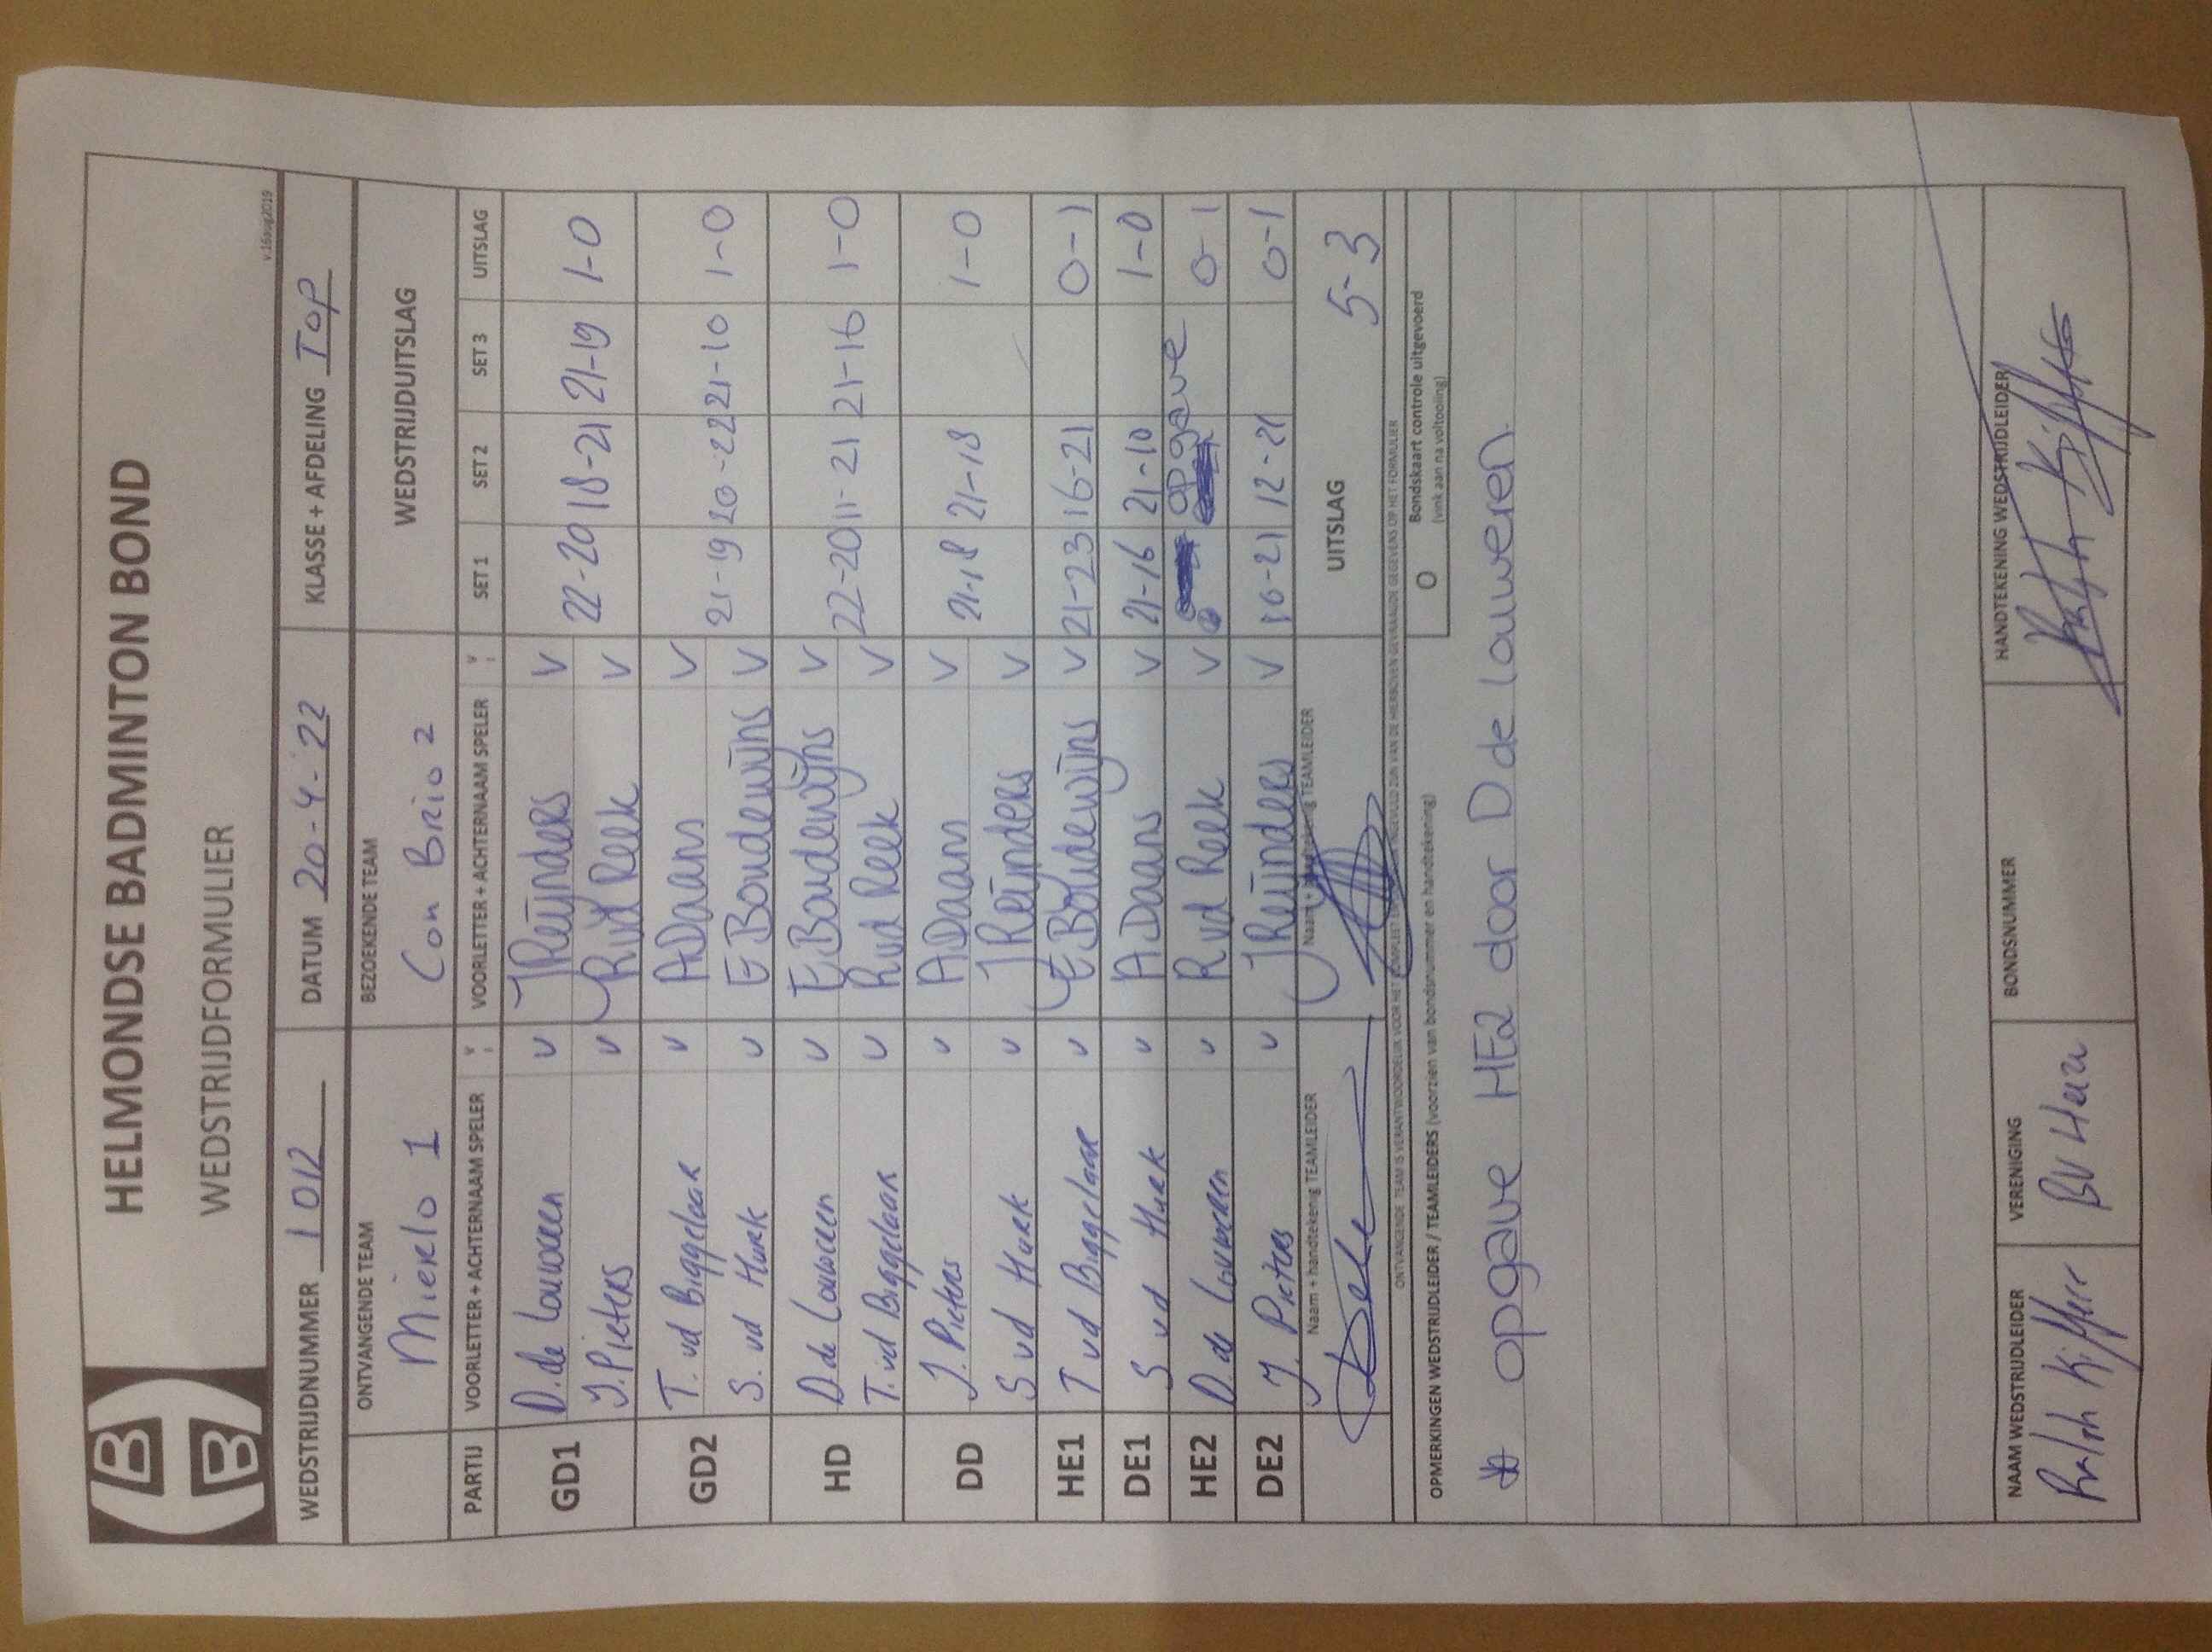 HELMONDSE BADMINTON BOND
WEDSTRIJDFORMULIER
v.16aug2019
WEDSTRIJDNUMMER 1012 DATUM 20-4-22 KLASSE + AFDELING TOP
ONTVANGENDE TEAM BEZOEKENDE TEAM WEDSTRIJDUITSLAG
Mierlo 1 Con Brio 2
PARTIJ VOORLETTER + ACHTERNAAM SPELER V VOORLETTER + ACHTERNAAM SPELER V SET 1 SET 2 SET 3 UITSLAG
GD1 D. de Louweren V J Reijnders V 22-20 18-21 21-19 1-0
J. Pieters V R vd Reek V
GD2 T. vd Biggelaar V A Daans V 21-19 20-22 21-10 1-0
S. vd Hurk V E Boudewijns V
HD D. de Louweren V E Boudewijns V 22-20 11-21 21-16 1-0
T. vd Biggelaar V R vd Reek V
DD J. Pieters V A Daans V 21-18 21-18 1-0
S vd Hurk V J Reijnders V
HE1 T vd Biggelaar V E Boudewijns V 21-23 16-21 0-1
DE1 S vd Hurk V A Daans V 21-16 21-10 1-0
HE2 D. de Louweren V R vd Reek V opgave 0-1
DE2 J. Pieters V J Reijnders V 16-21 12-21 0-1
Naam + handtekenig TEAMLEIDER Naam + handtekenig TEAMLEIDER UITSLAG 5-3
ONTVANGENDE TEAM IS VERANTWOORDELIJK VOOR HET COMPLEET EN INGEVULD ZIJN VAN DE HIERBOVEN GEVRAAGDE GEGEVENS OP HET FORMULIER
OPMERKINGEN WEDSTRIJDLEIDER / TEAMLEIDERS (voorzien van bondsnummer en handtekening)
O Bondskaart controle uitgevoerd
(vink aan na voltooiing)
* opgave HE2 door D de Louweren.
NAAM WEDSTRIJDLEIDER VERENIGING BONDSNUMMER HANDTEKENING WEDSTRIJDLEIDER
Ralph Kiffer BV